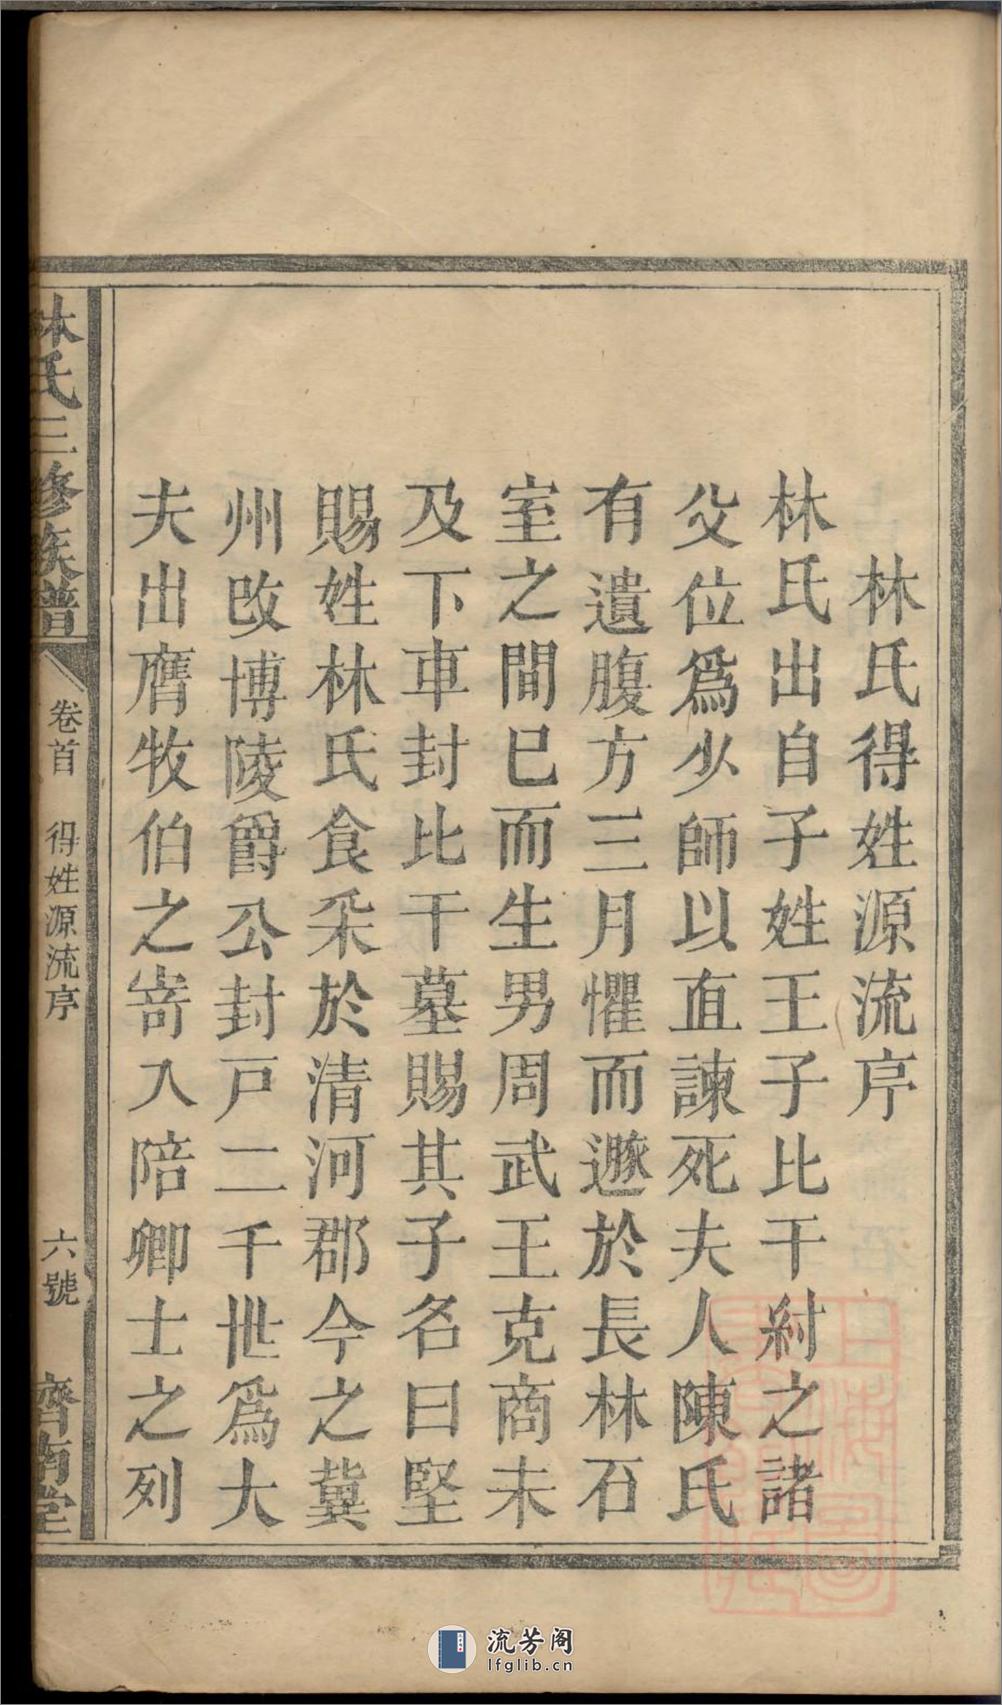 林氏得姓源流序
林氏出自子姓王子比干紂之諸
父位爲少師以直諫死夫人陳氏
有遺腹方三月懼而遯於長林石
室之間已而生男周武王克商未
及下車封比干墓賜其子名曰堅
賜姓林氏食采於清河郡今之冀
州改博陵爵公封戸二千世爲大
夫出膺牧伯之寄入陪卿士之列
林氏三修族譜
卷首
得姓源流序
六號
齊南堂
流芳阁
lfglib.cn